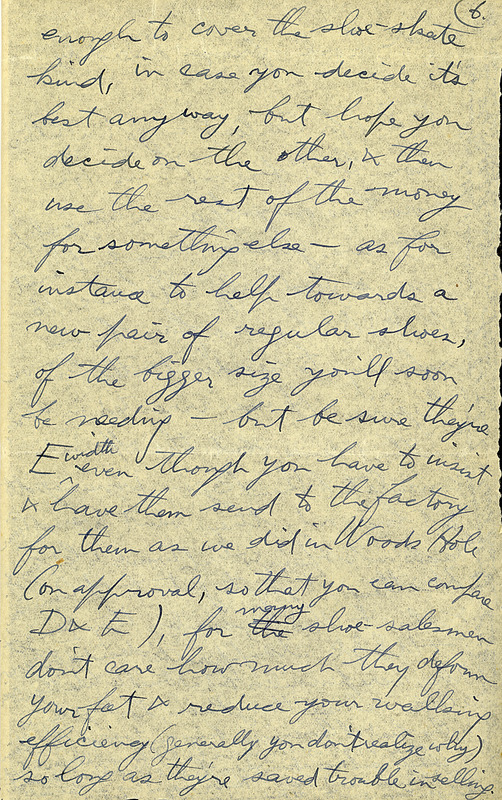 6.
enough to cover the shoe-skate
kind, in case you decide it's
best anyway, but hope you
decide on the other, & then
use the rest of the money
for something else — as for
instance to help towards a
new pair of regular shoes,
of the bigger size you'll soon
be needing — but be sure they're
E width even though you have to insist
& have them send to the factory
for them as we did in Woods Hole
(on approval, so that you can compare
D & E), for many the shoe-salesmen
don't care how much they deform
your feet & reduce your walking
efficiency (generally you don't realize why)
so long as they're saved trouble in selling.